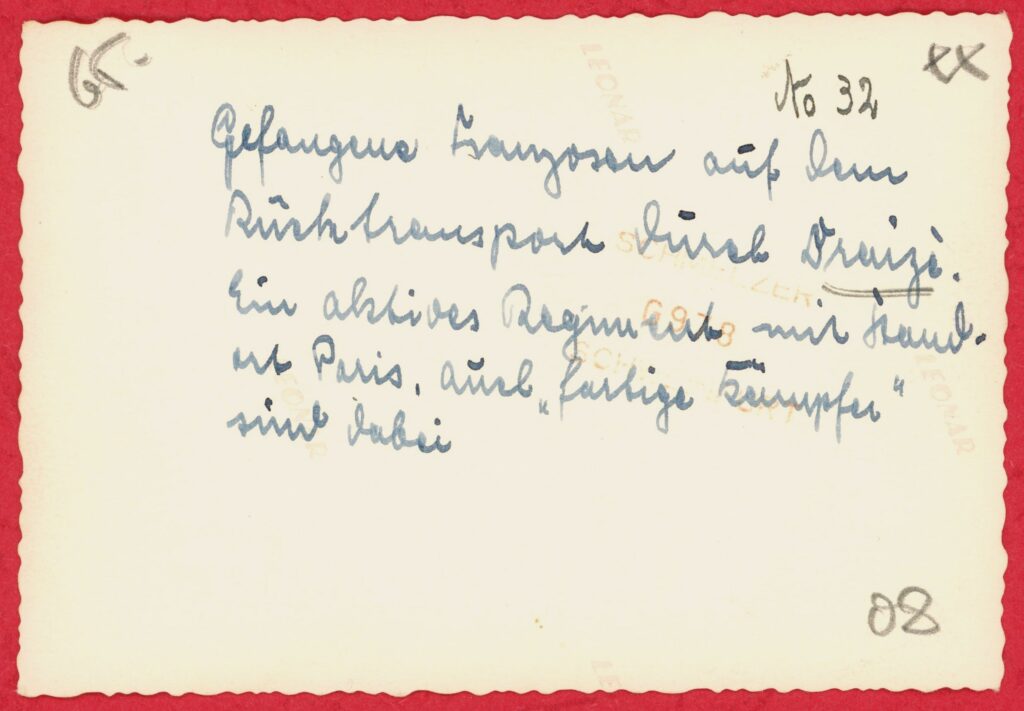 65.-
xx
No 32
Gefangene Franzosen auf dem
Rücktransport durch Draizé.
Ein aktives Regiment mit Stand-
ort Paris, auch „farbige Kämpfer"
sind dabei
08
LEONAR
SCHMELZER
6978
LEONAR
LEONAR